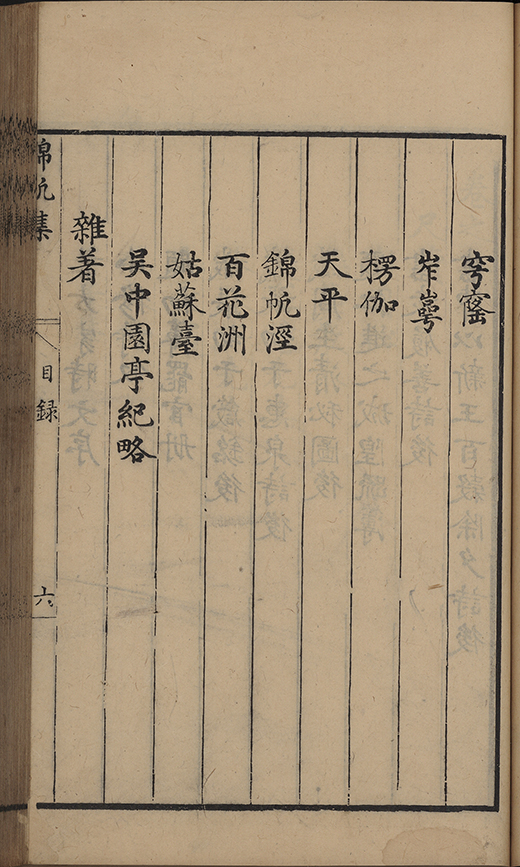 穹窿
岝崿
楞伽
天平
錦帆涇
百花洲
姑蘇臺
吴中園亭紀略
雜著
錦帆集
目録
六